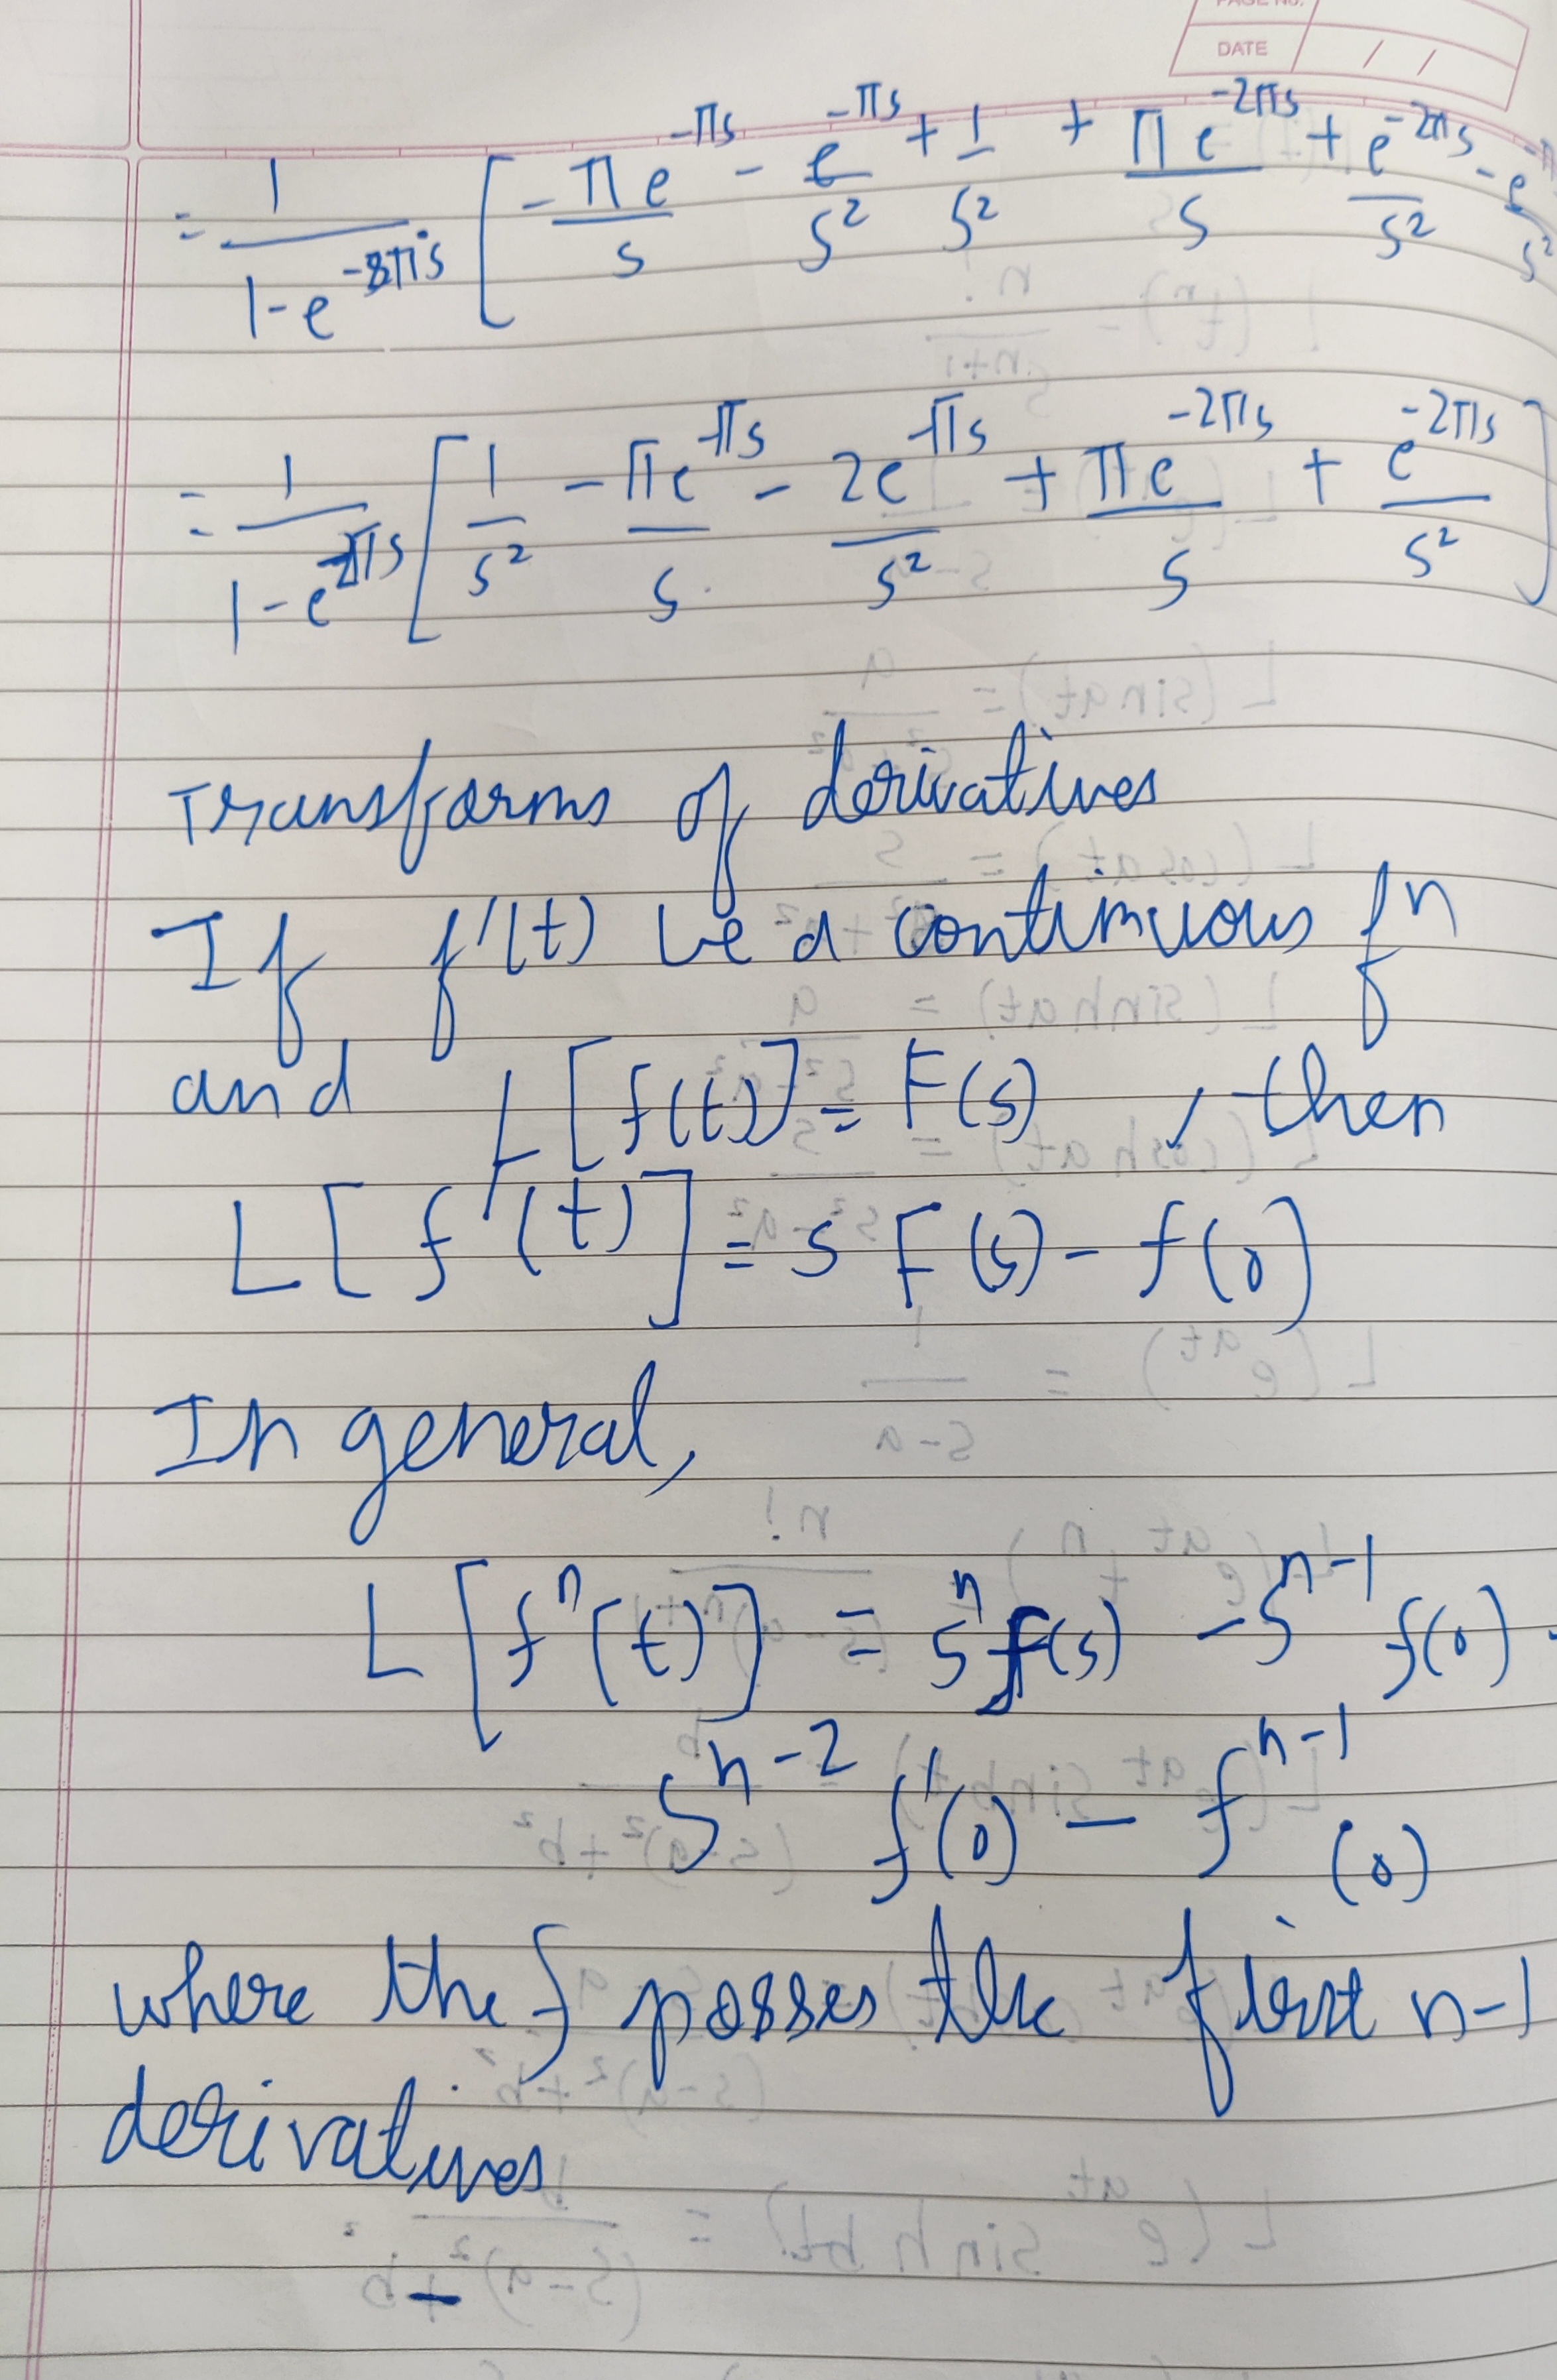 PAGE NO.
DATE / /
= 1/(1-e^{-2πs}) [ -πe^{-πs}/s - e^{-πs}/s² + 1/s² + πe^{-2πs}/s + e^{-2πs}/s² - e^{-π}/s²
= 1/(1-e^{-2πs}) [ 1/s² - πe^{-πs}/s - 2e^{-πs}/s² + πe^{-2πs}/s + e^{-2πs}/s² ]
Transforms of derivatives
If f'(t) be a continuous fⁿ
and L[f(t)] = F(s) , then
L[f'(t)] = s F(s) - f(0)
In general,
L[fⁿ(t)] = sⁿ F(s) - s^{n-1} f(0) -
s^{n-2} f'(0) - f^{n-1}(0)
where the f posses the first n-1
derivatives